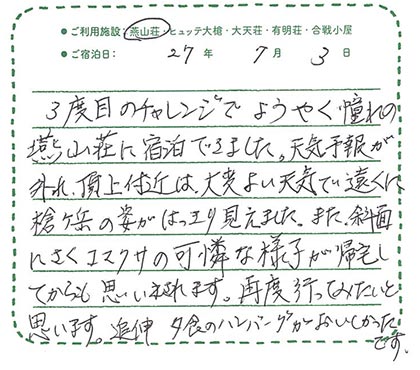 ●ご利用施設：燕山荘・ヒュッテ大槍・大天荘・有明荘・合戦小屋
●ご宿泊日： 27 年 7 月 3 日
3度目のチャレンジでようやく憧れの
燕山荘に宿泊できました。天気予報が
外れ、頂上付近は、大変よい天気で遠くに
槍ヶ岳の姿がはっきり見えました。また、斜面
にさくコマクサの可憐な様子が帰宅し
てからも思い出されます。再度行ってみたいと
思います。追伸 夕食のハンバーグがおいしかった
です。